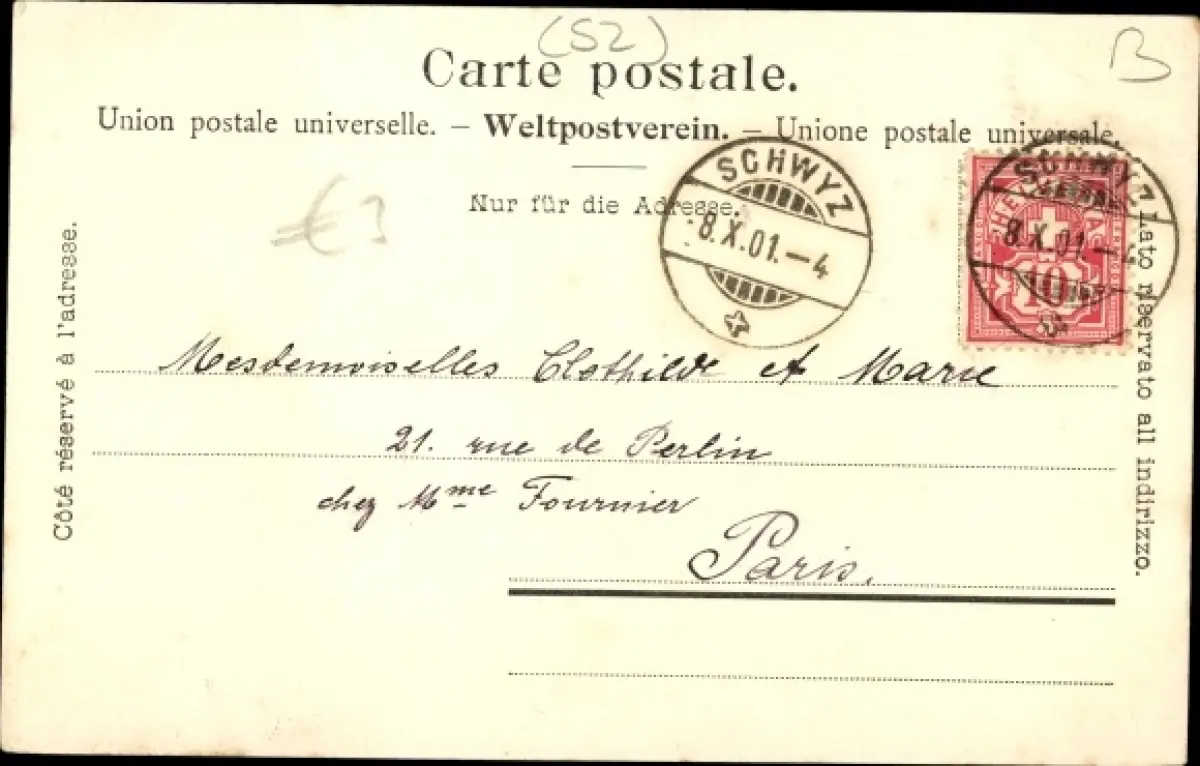 (SZ)
B
Carte postale.
Union postale universelle. — Weltpostverein. — Unione postale universale.
Nur für die Adresse.
SCHWYZ
-8.X.01.-4
SCHWYZ
-8.X.01.-4
HELVETIA
10
€3
Côté réservé à l'adresse.
Lato riservato all indirizzo.
Mesdemoiselles Clothilde et Marie
21. rue de Perlin
chez Mme Fournier
Paris.